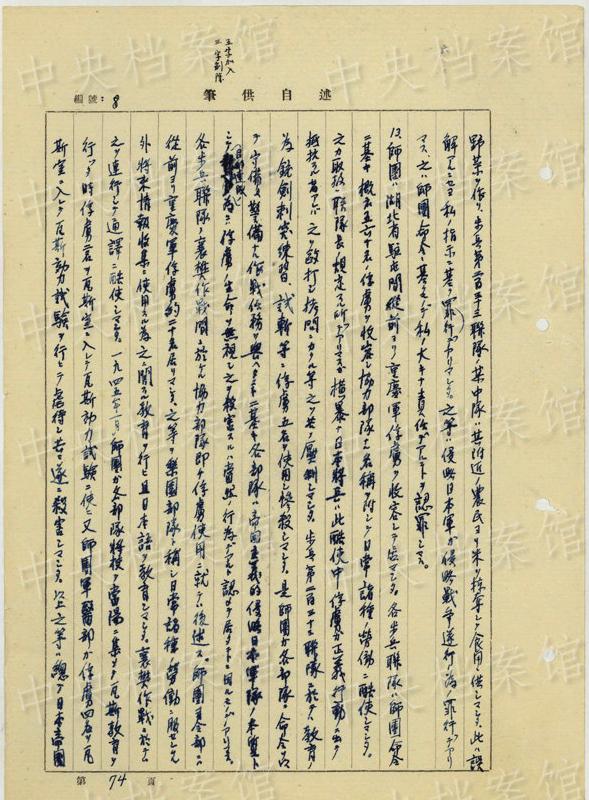 述自供筆
編號:8
五字加入
三字削除
野菜ヲ作リ、歩兵第二百三十三聯隊ノ某中隊ハ其附近ノ農民ヨリ米ヲ掠奪シテ食用ニ供シマシタ。此ハ誤
解アルモ私ノ指示ニ基ク罪行デアリマス。之等ハ侵略日本軍ガ侵略戦争遂行ノ為ノ罪行デアリ
マス。之ハ師團命令ニ基クモ私ノ大キナ責任ガアルコトヲ認罪シマス。
13、師團ハ湖北省駐屯間従前ヨリ重慶軍俘虜ヲ收容シテ居マシタ。各歩兵聯隊ハ師團命令
ニ基キ概ネ五六十名ノ俘虜ヲ收容シ協力部隊ナル名稱ヲ附シテ日常諸種ノ労働ニ酷使シマシタ。
之カ取扱ハ聯隊長ノ規定スル所デアリマスガ横暴ナ日本将兵ハ此酷使中俘虜ガ正義ノ行動ニ出テ
抵抗スル者アレバ之ヲ殴打シ拷問ニカケル等シ之ヲ壓制シマシタ。歩兵第二百三十二聯隊ニ於テハ教育ノ
為銃劍刺突練習、試斬等ニ俘虜五名ヲ使用シ惨殺シマシタ。是師團ガ各部隊ニ命令ヲ以
テ守備及警備ナル作戦任務ヲ與ヘタルニ基キ各部隊ハ帝國主義的侵略日本軍隊ノ本質ト
シテ(目的達成ノ)為ニハ俘虜ノ生命ヲ無視シ之ヲ殺害スルハ當然ノ行為デアルト認メテ居タコトニ因ルモノデアリマス。
各歩兵聯隊ノ襄樊作戦間ニ於ケル協力部隊即チ俘虜使用ニ就テハ後述ス。師團司令部ニハ
従前ヨリ重慶軍俘虜約二十名居リマシタ。之等ヲ樂園部隊ト稱シ日常諸種ノ労働ニ服セシメル
外将来情報收集ニ使用スル為之ニ関スル教育ヲ行ヒ且日本語ヲ教育シマシタ。襄樊作戦ニ於テハ
之ヲ連行シテ通譯ニ酷使シマシタ。一九四五年一月師團ガ各部隊将校ヲ當陽ニ集メテ瓦斯教育ヲ
行ッタ時俘虜二名ヲ瓦斯室ニ入レテ瓦斯効力試験ニ使ヒ又師團軍醫部ガ俘虜四名ヲ瓦
斯室ニ入レテ瓦斯効力試験ヲ行ヒテ虐待シ苦シメ遂ニ殺害シマシタ。以上之等ハ總テ日本帝國
第74頁
中央档案馆